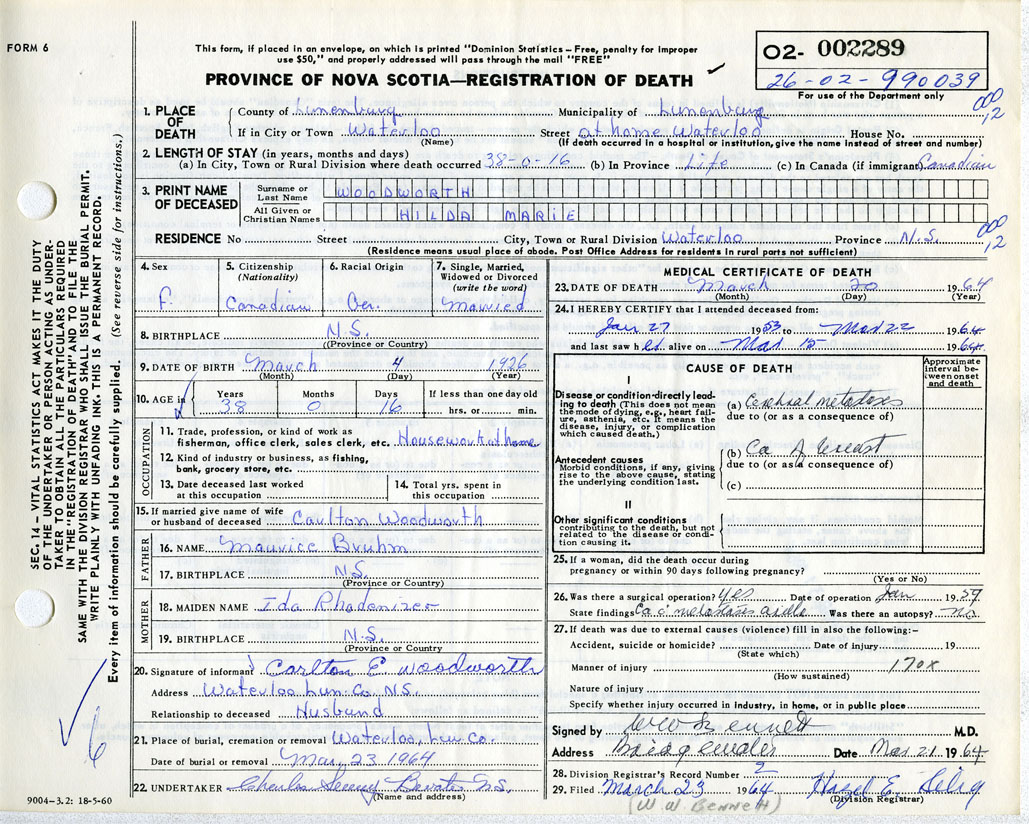 FORM 6
This form, if placed in an envelope, on which is printed "Dominion Statistics – Free, penalty for improper
use $50," and properly addressed will pass through the mail "FREE"
PROVINCE OF NOVA SCOTIA—REGISTRATION OF DEATH
02- 002289
26-02-990039
For use of the Department only
1. PLACE OF DEATH
County of Lunenburg Municipality of Lunenburg
000
12
If in City or Town Waterloo Street at home Waterloo House No.
(Name) (If death occurred in a hospital or institution, give the name instead of street and number)
2. LENGTH OF STAY (in years, months and days)
(a) In City, Town or Rural Division where death occurred 38-0-16 (b) In Province Life (c) In Canada (if immigrant) Canadian
3. PRINT NAME OF DECEASED
Surname or Last Name WOODWORTH
All Given or Christian Names HILDA MARIE
RESIDENCE No Street City, Town or Rural Division Waterloo Province N.S.
000
12
(Residence means usual place of abode. Post Office Address for residents in rural parts not sufficient)
4. Sex
F.
5. Citizenship
(Nationality)
Canadian
6. Racial Origin
Ger.
7. Single, Married,
Widowed or Divorced
(write the word)
Married
8. BIRTHPLACE N.S.
(Province or Country)
9. DATE OF BIRTH March 4 1926
(Month) (Day) (Year)
10. AGE in Years Months Days If less than one day old
38 0 16 hrs. or min.
OCCUPATION
11. Trade, profession, or kind of work as
fisherman, office clerk, sales clerk, etc. Housework at home
12. Kind of industry or business, as fishing,
bank, grocery store, etc.
13. Date deceased last worked
at this occupation
14. Total yrs. spent in
this occupation
15. If married give name of wife
or husband of deceased Carlton Woodworth
FATHER
16. NAME Maurice Bruhm
17. BIRTHPLACE N.S.
(Province or Country)
MOTHER
18. MAIDEN NAME Ida Rhodenizer
19. BIRTHPLACE N.S.
(Province or Country
20. Signature of informant Carlton E Woodworth
Address Waterloo Lun. Co. N.S.
Relationship to deceased Husband
21. Place of burial, cremation or removal Waterloo, Lun Co.
Date of burial or removal Mar. 23 1964
22. UNDERTAKER Charles N.S.
(Name and address)
MEDICAL CERTIFICATE OF DEATH
23. DATE OF DEATH March 20 1964
(Month) (Day) (Year)
24. I HEREBY CERTIFY that I attended deceased from:
Jan 27 1953 to Mar 22 1964
and last saw her alive on Mar 15 1964
CAUSE OF DEATH
Approximate
interval be-
tween onset
and death
I
Disease or condition directly lead-
ing to death (This does not mean
the mode of dying, e.g., heart fail-
ure, asthenia, etc. It means the
disease, injury, or complication
which caused death.)
(a) Cerebral metastases
due to (or as a consequence of)
Antecedent causes
Morbid conditions, if any, giving
rise to the above cause, stating
the underlying condition last.
(b) Ca of breast
due to (or as a consequence of)
(c)
II
Other significant conditions
contributing to the death, but not
related to the disease or condi-
tion causing it.
25. If a woman, did the death occur during
pregnancy or within 90 days following pregnancy?
(Yes or No)
26. Was there a surgical operation? yes Date of operation Jan 1959
State findings Ca c metastases Was there an autopsy? no
27. If death was due to external causes (violence) fill in also the following:–
Accident, suicide or homicide? Date of injury 19
(State which)
Manner of injury 170X
(How sustained)
Nature of injury
Specify whether injury occurred in Industry, in home, or in public place
Signed by W W Bennett M.D.
Address Bridgewater Date Mar 21 1964
28. Division Registrar's Record Number 2
29. Filed March 23 1964 Hazel E. Selig
(Division Registrar)
(W. W. BENNETT)
SEC. 14 – VITAL STATISTICS ACT MAKES IT THE DUTY
OF THE UNDERTAKER OR PERSON ACTING AS UNDER-
TAKER TO OBTAIN ALL THE PARTICULARS REQUIRED
IN THE "REGISTRATION OF DEATH" AND TO FILE THE
SAME WITH THE DIVISION REGISTRAR WHO SHALL ISSUE THE BURIAL PERMIT.
WRITE PLAINLY WITH UNFADING INK. THIS IS A PERMANENT RECORD.
Every item of information should be carefully supplied. (See reverse side for instructions.)
6
9004-3.2: 18-5-60